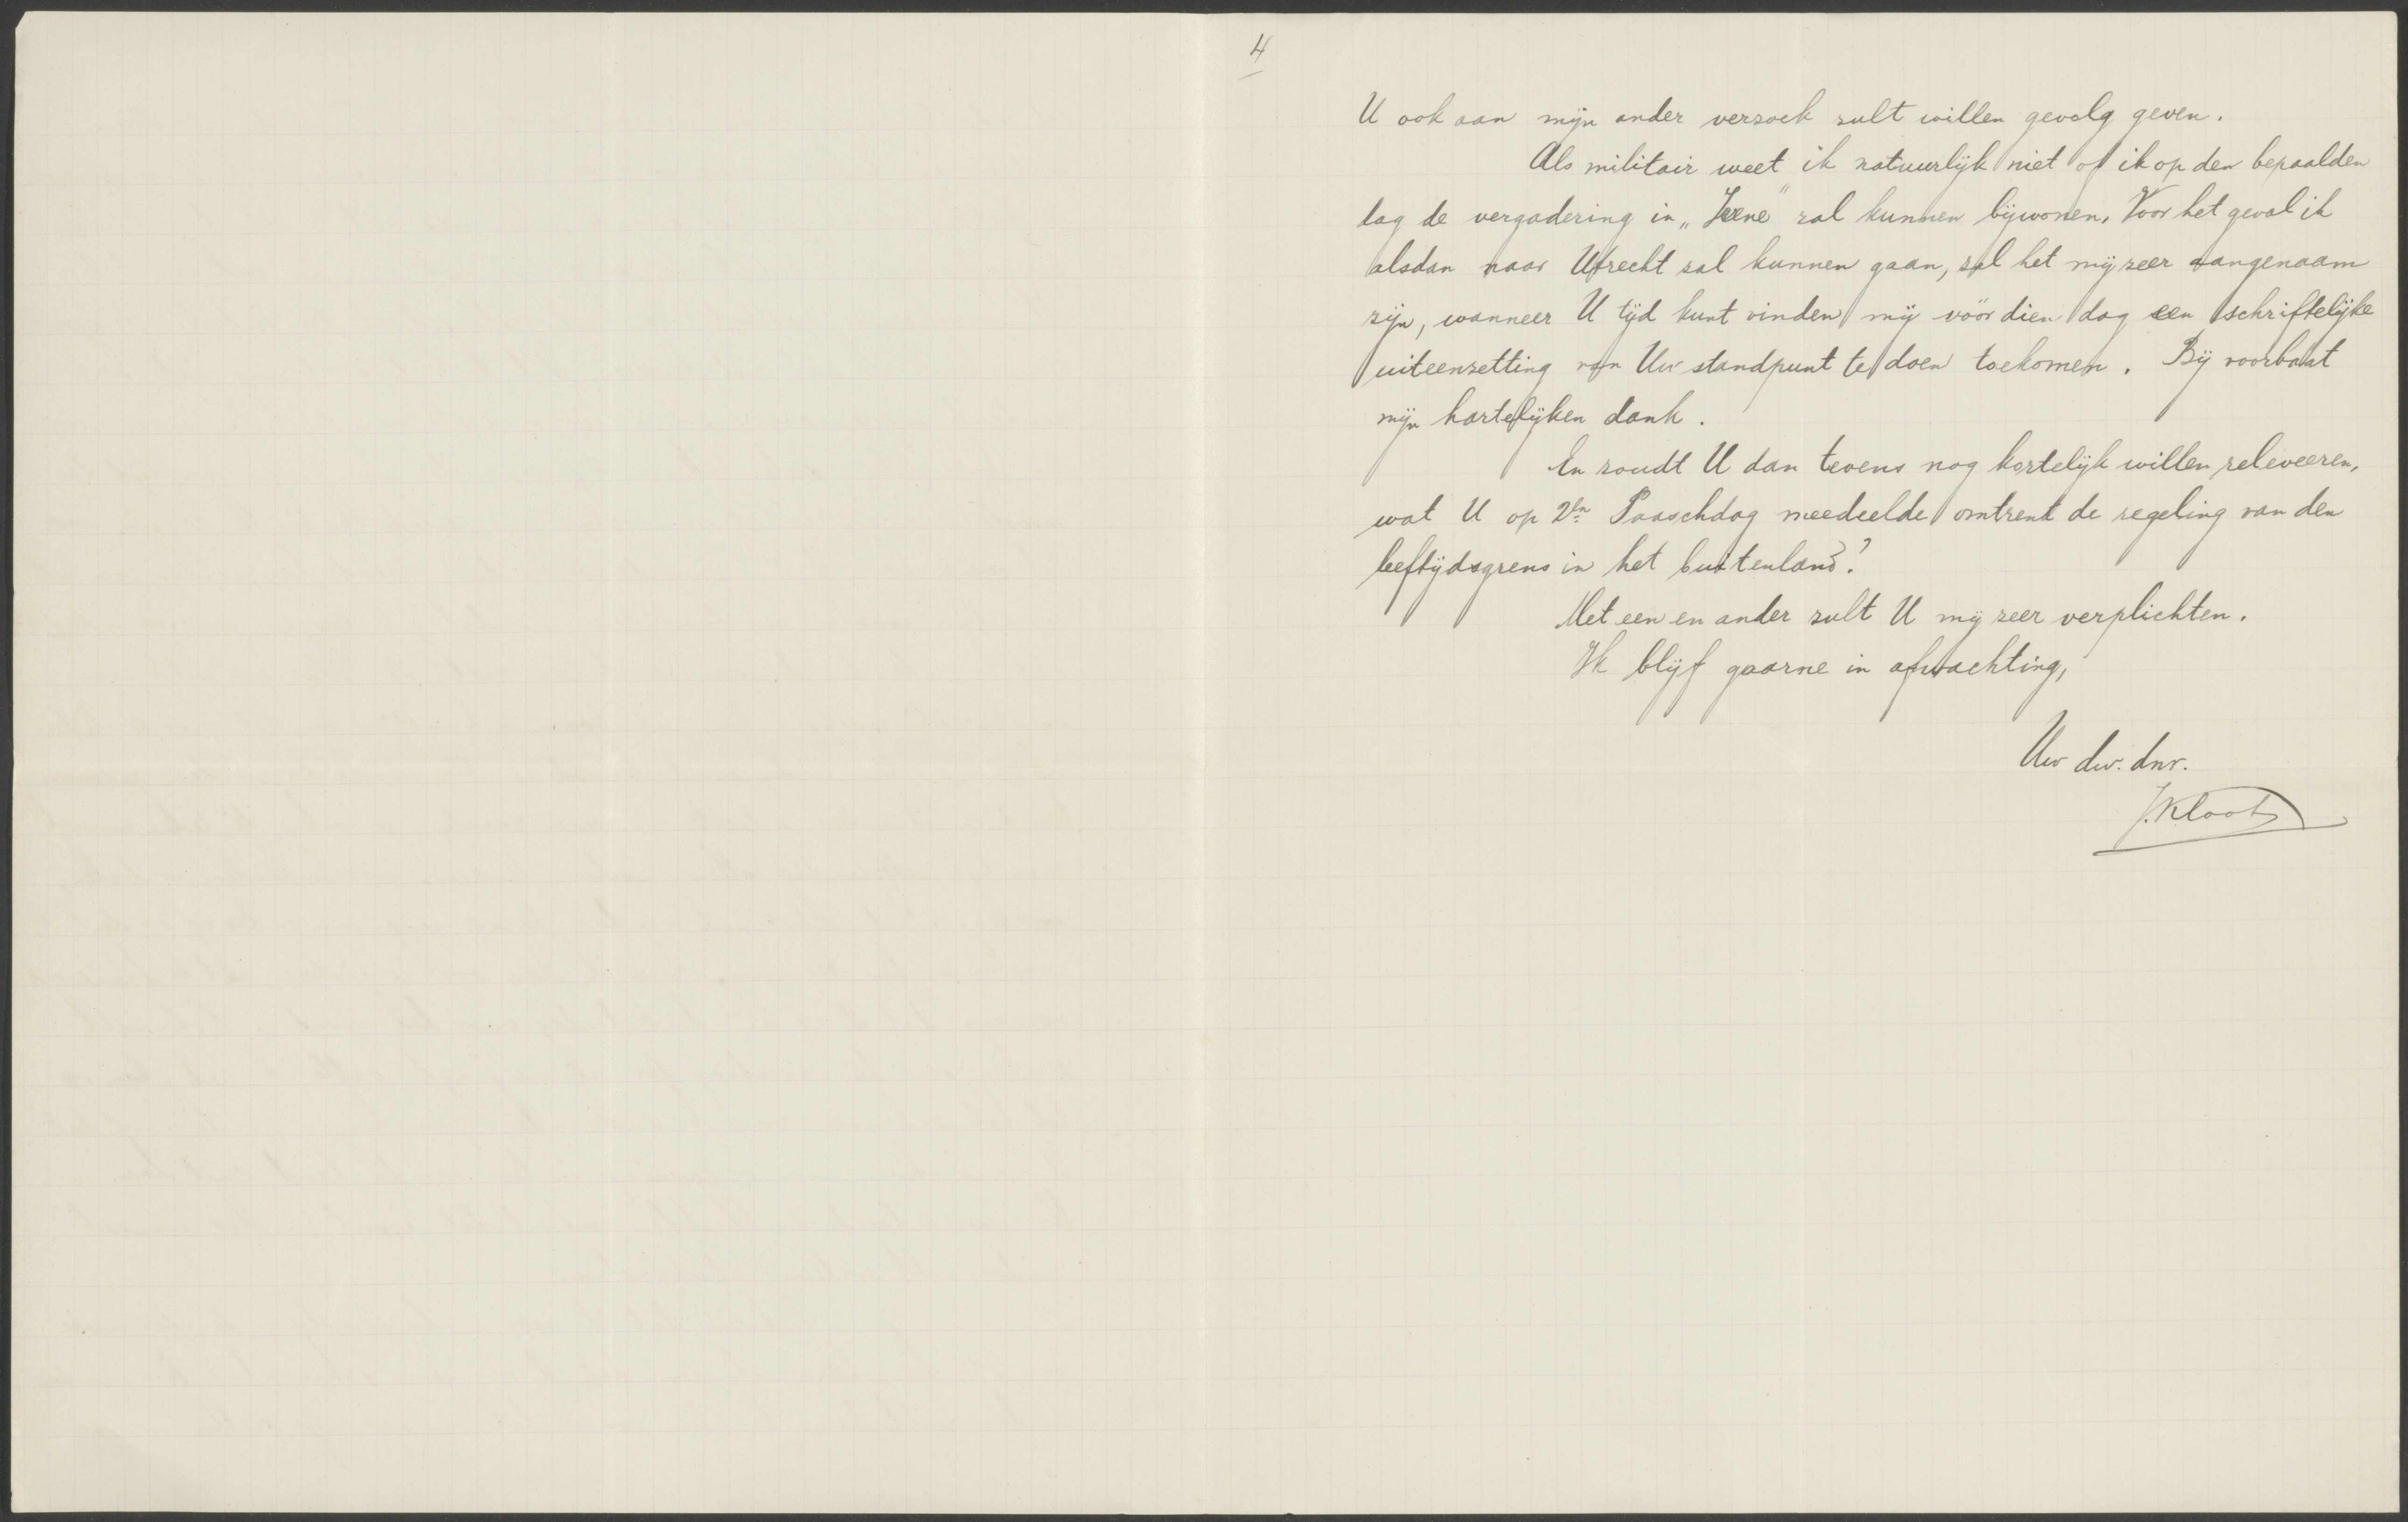 4
U ook aan mijn ander verzoek zult willen gevolg geven.
Als militair weet ik natuurlijk niet of ik op den bepaalden
dag de vergadering in „Irene" zal kunnen bijwonen. Voor het geval ik
alsdan naar Utrecht zal kunnen gaan, zal het mij zeer aangenaam
zijn, wanneer U tijd kunt vinden mij vóór dien dag een schriftelijke
uiteenzetting van Uw standpunt te doen toekomen. Bij voorbaat
mijn hartelijken dank.
En zoudt U dan tevens nog kortelijk willen releveeren,
wat U op 2en Paaschdag meedeelde omtrent de regeling van den
leeftijdsgrens in het buitenland?
Met een en ander zult U mij zeer verplichten.
Ik blijf gaarne in afwachting,
Uw dw. dnr.
J. Kloots